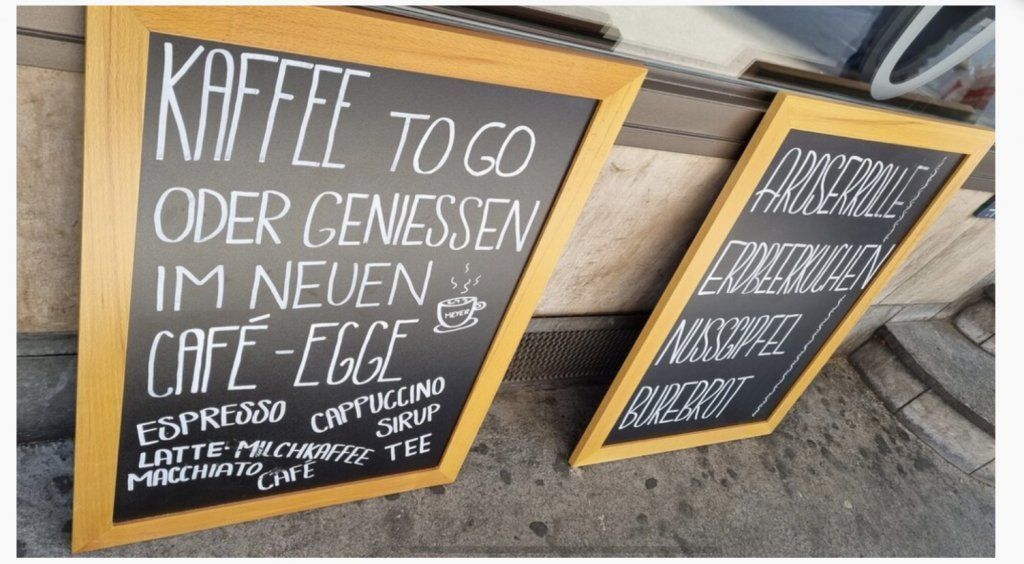 KAFFEE TO GO
ODER GENIESSEN
IM NEUEN
CAFÉ-EGGE
MEYER
ESPRESSO CAPPUCCINO
SIRUP
LATTE- MILCHKAFFEE TEE
MACCHIATO CAFÉ
AROSERROLLE
ERDBEERKUCHEN
NUSSGIPFEL
BUREBROT